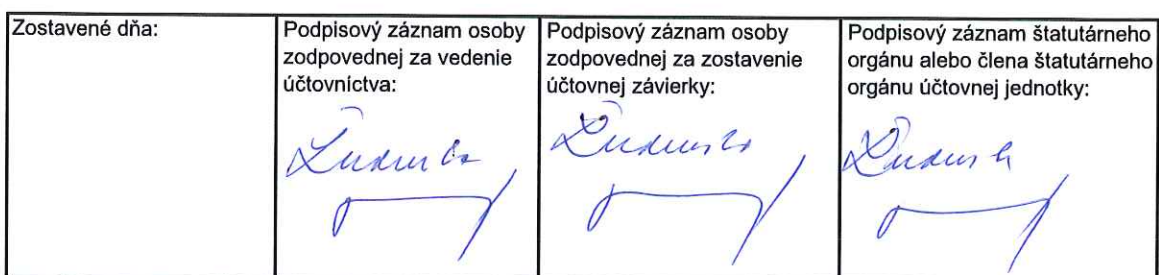 Zostavené dňa:
Podpisový záznam osoby
zodpovednej za vedenie
účtovníctva:
Podpisový záznam osoby
zodpovednej za zostavenie
účtovnej závierky:
Podpisový záznam štatutárneho
orgánu alebo člena štatutárneho
orgánu účtovnej jednotky: